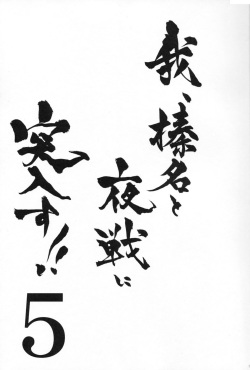 我、榛名と
夜戦に
突入す!!
5